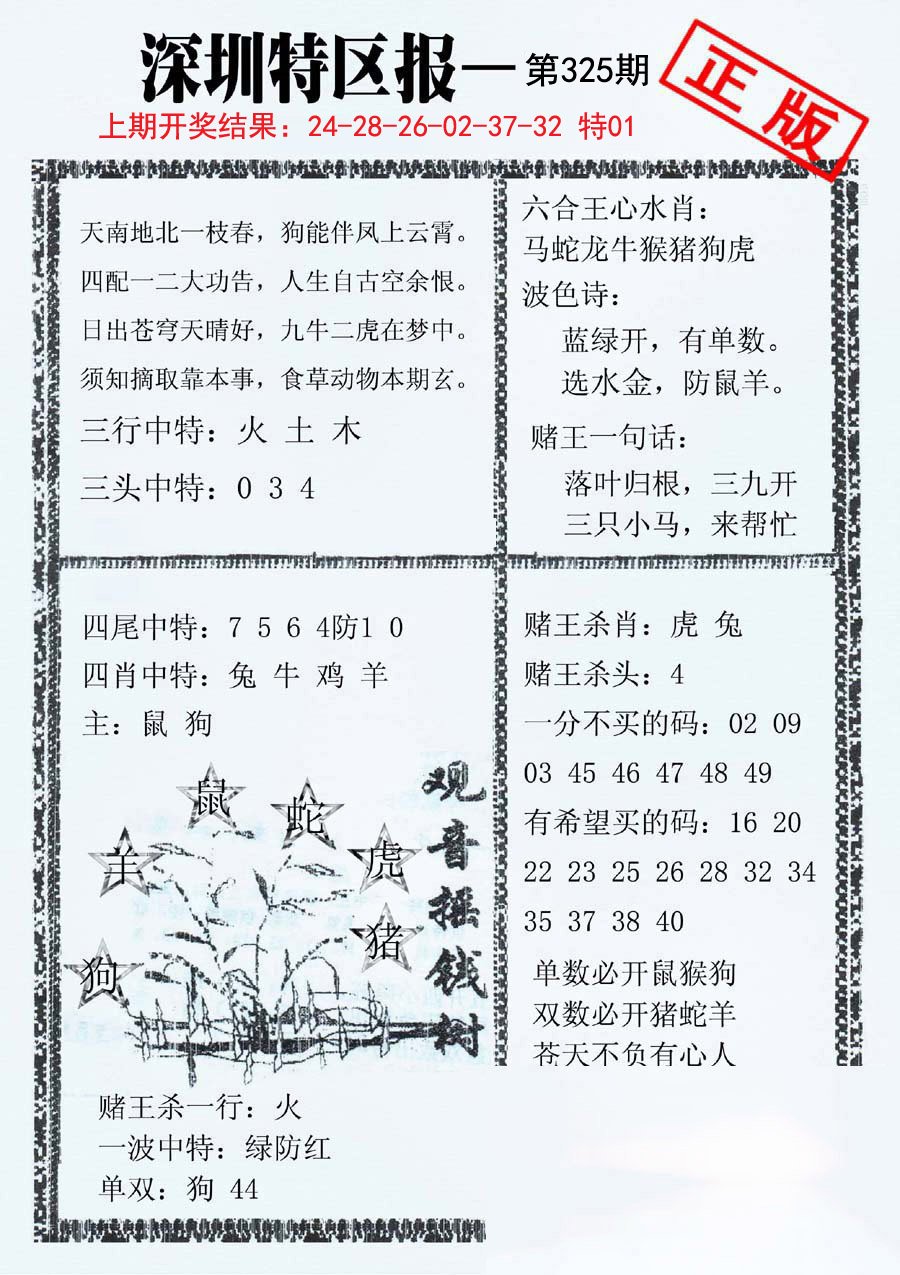 深圳特区报—第325期
正版
上期开奖结果：24-28-26-02-37-32 特01
天南地北一枝春，狗能伴凤上云霄。
四配一二大功告，人生自古空余恨。
日出苍穹天晴好，九牛二虎在梦中。
须知摘取靠本事，食草动物本期玄。
三行中特：火 土 木
三头中特：0 3 4
六合王心水肖：
马蛇龙牛猴猪狗虎
波色诗：
蓝绿开，有单数。
选水金，防鼠羊。
赌王一句话：
落叶归根，三九开
三只小马，来帮忙
四尾中特：7 5 6 4防1 0
四肖中特：兔 牛 鸡 羊
主：鼠 狗
鼠
蛇
羊
虎
猪
狗
观音摇钱树
赌王杀一行：火
一波中特：绿防红
单双：狗 44
赌王杀肖：虎 兔
赌王杀头：4
一分不买的码：02 09
03 45 46 47 48 49
有希望买的码：16 20
22 23 25 26 28 32 34
35 37 38 40
单数必开鼠猴狗
双数必开猪蛇羊
苍天不负有心人